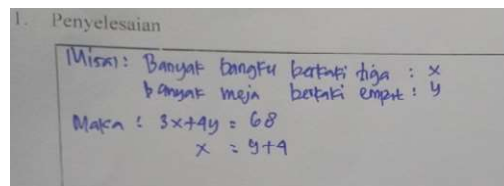 1. Penyelesaian
Misal : Banyak bangku berkaki tiga : x
banyak meja berkaki empat : y
Maka : 3x+4y = 68
x = y+4